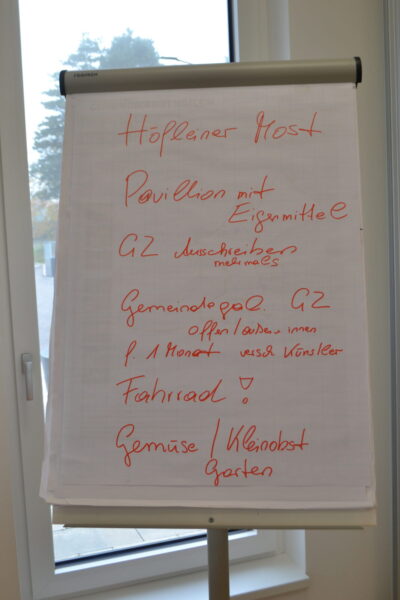 FRANKEN
Höfleiner Most
Pavillion mit
Eigenmittel
GZ Ausschreiben
mehrmals
Gemeindegal. GZ
offen/außen + innen
f. 1 Monat versch Künstler
Fahrrad !
Gemüse / Kleinobst
Garten